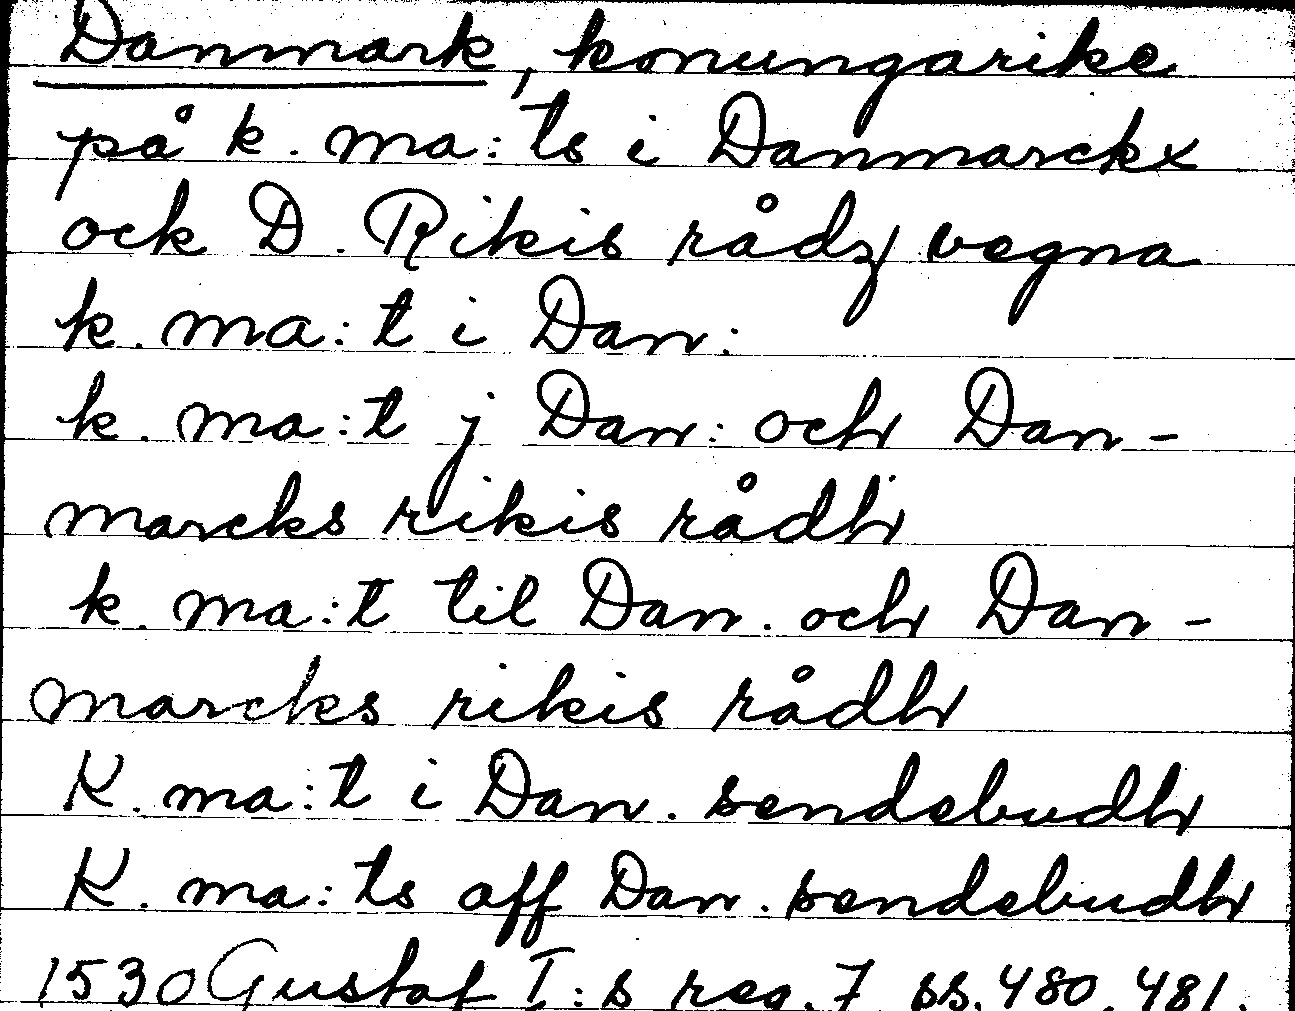 Danmark, konungarike
på k. ma:ts i Danmarckx
ock D. Rikis rådz vegna
k. ma:t i Dan:
k. ma:t j Dan: och Dan-
marcks rikis rådh
k. ma:t til Dan. och Dan-
marcks rikis rådh
K. ma:t i Dan. sendebudh
K. ma:ts aff Dan. sendebudh
1530 Gustaf I:s reg. 7 ss. 480, 481.